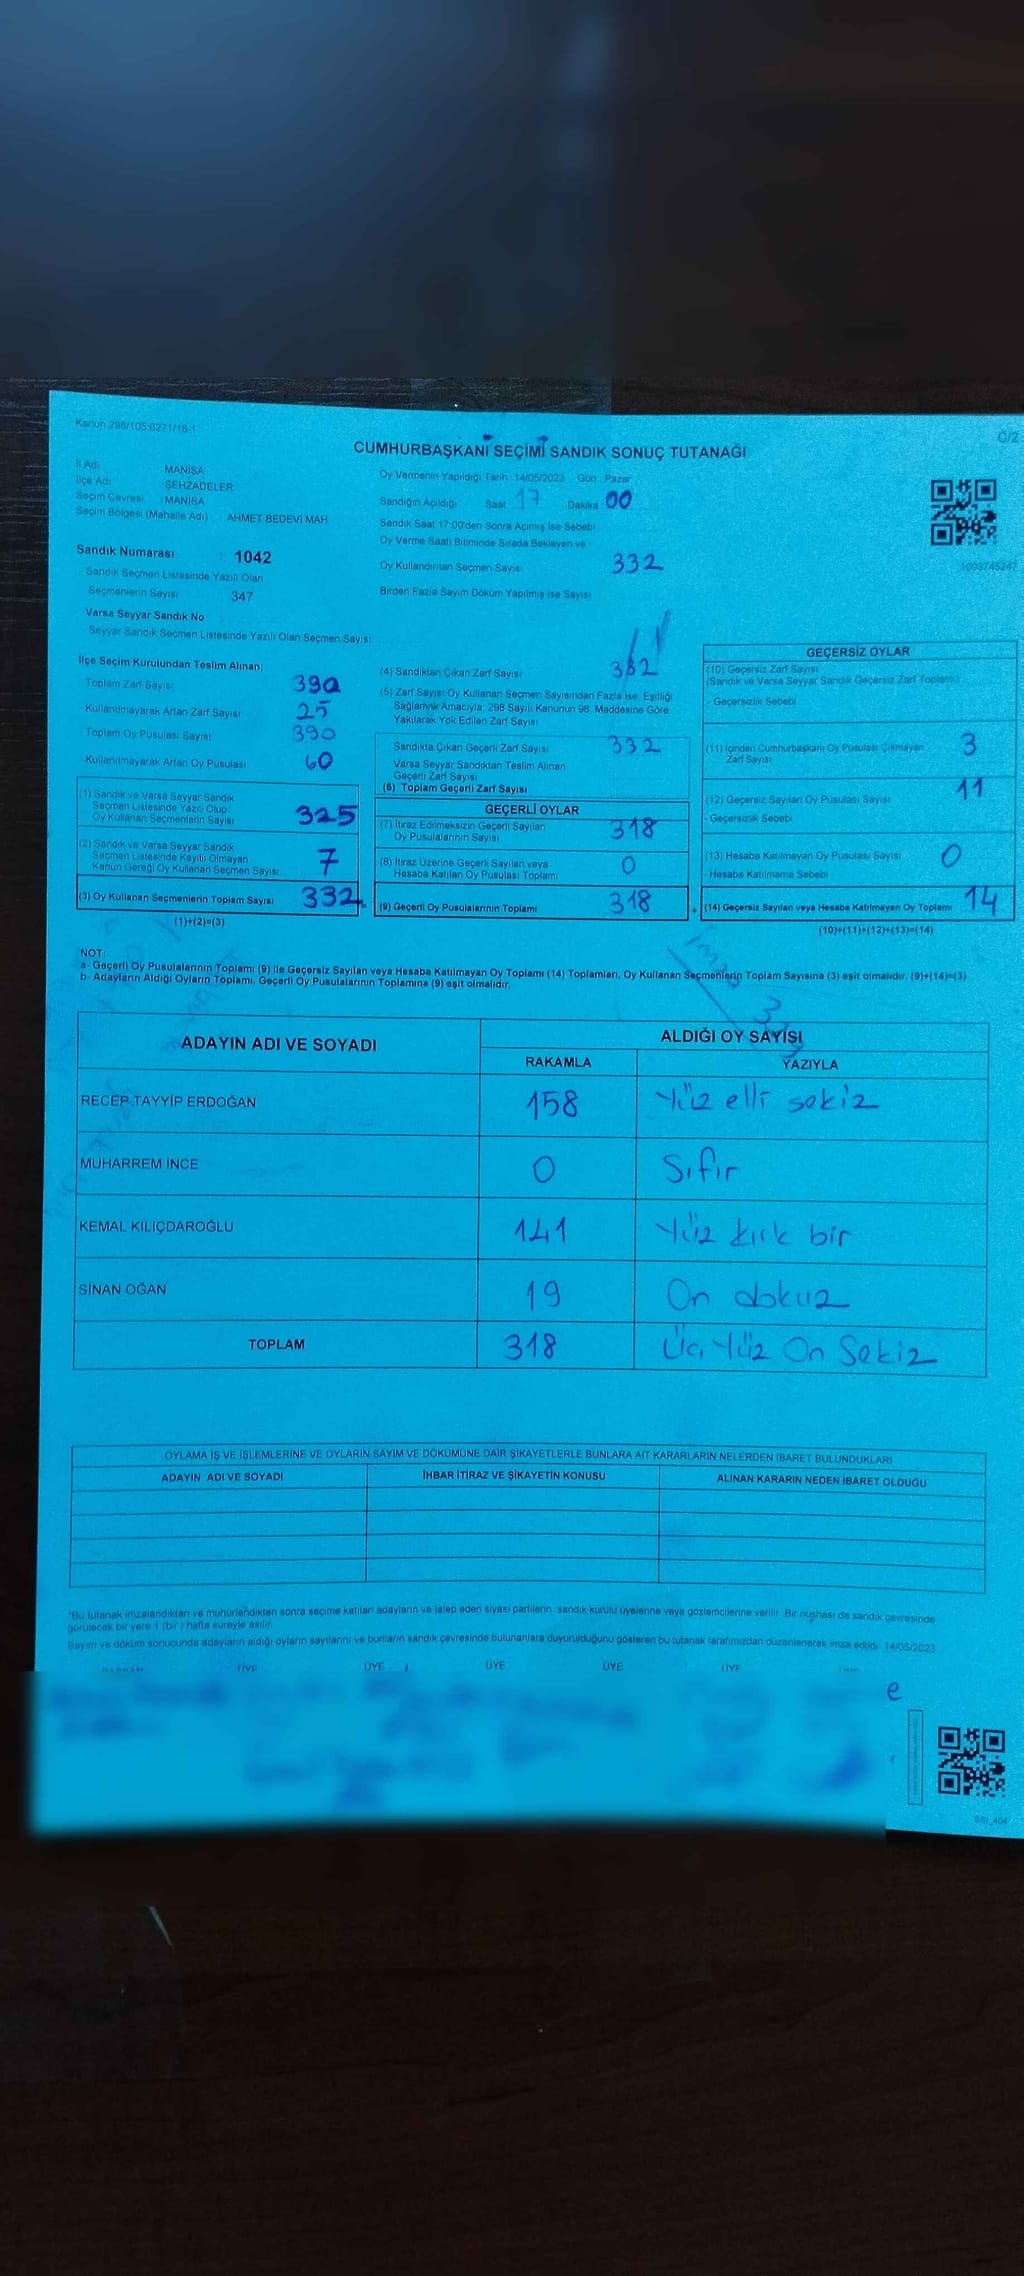 Kanun 298/105 6271/18-1
C/2
CUMHURBAŞKANI SEÇİMİ SANDIK SONUÇ TUTANAĞI
İl Adı MANİSA
İlçe Adı ŞEHZADELER
Seçim Çevresi : MANİSA
Seçim Bölgesi (Mahalle Adı) AHMET BEDEVİ MAH
Oy Vermenin Yapıldığı Tarih 14/05/2023 Gün : Pazar
Sandığın Açıldığı Saat 17 Dakika 00
Sandık Saat 17:00'den Sonra Açımış İse Sebebi
Oy Verme Saati Bitiminde Sırada Bekleyen ve
Oy Kullandırılan Seçmen Sayısı 332
Birden Fazla Sayım Döküm Yapılmış İse Sayısı
1093745247
Sandık Numarası : 1042
Sandık Seçmen Listesinde Yazılı Olan
Seçmenlerin Sayısı 347
Varsa Seyyar Sandık No :
Seyyar Sandık Seçmen Listesinde Yazılı Olan Seçmen Sayısı:
İlçe Seçim Kurulundan Teslim Alınan;
Toplam Zarf Sayısı 390
Kullanılmayarak Artan Zarf Sayısı 25
Toplam Oy Pusulası Sayısı 390
Kullanılmayarak Artan Oy Pusulası 60
(1) Sandık ve Varsa Seyyar Sandık
Seçmen Listesinde Yazılı Olup
Oy Kullanan Seçmenlerin Sayısı 325
(2) Sandık ve Varsa Seyyar Sandık
Seçmen Listesinde Kayıtlı Olmayan
Kanun Gereği Oy Kullanan Seçmen Sayısı 7
(3) Oy Kullanan Seçmenlerin Toplam Sayısı 332
(1)+(2)=(3)
(4) Sandıktan Çıkan Zarf Sayısı 332
(5) Zarf Sayısı Oy Kullanan Seçmen Sayısından Fazla İse, Eşitliği
Sağlamak Amacıyla; 298 Sayılı Kanunun 98. Maddesine Göre
Yakılarak Yok Edilen Zarf Sayısı
Sandıkta Çıkan Geçerli Zarf Sayısı 332
Varsa Seyyar Sandıktan Teslim Alınan
Geçerli Zarf Sayısı
(6) Toplam Geçerli Zarf Sayısı
GEÇERLİ OYLAR
(7) İtiraz Edilmeksizin Geçerli Sayılan
Oy Pusulalarının Sayısı 318
(8) İtiraz Üzerine Geçerli Sayılan veya
Hesaba Katılan Oy Pusulası Toplamı 0
(9) Geçerli Oy Pusulalarının Toplamı 318
GEÇERSİZ OYLAR
(10) Geçersiz Zarf Sayısı
(Sandık ve Varsa Seyyar Sandık Geçersiz Zarf Toplamı)
- Geçersizlik Sebebi
(11) İçinden Cumhurbaşkanı Oy Pusulası Çıkmayan
Zarf Sayısı 3
(12) Geçersiz Sayılan Oy Pusulası Sayısı 11
- Geçersizlik Sebebi
(13) Hesaba Katılmayan Oy Pusulası Sayısı 0
- Hesaba Katılmama Sebebi
+ (14) Geçersiz Sayılan veya Hesaba Katılmayan Oy Toplamı 14
(10)+(11)+(12)+(13)=(14)
NOT:
a- Geçerli Oy Pusulalarının Toplamı (9) ile Geçersiz Sayılan veya Hesaba Katılmayan Oy Toplamı (14) Toplamları, Oy Kullanan Seçmenlerin Toplam Sayısına (3) eşit olmalıdır. (9)+(14)=(3)
b- Adayların Aldığı Oyların Toplamı, Geçerli Oy Pusulalarının Toplamına (9) eşit olmalıdır.
ADAYIN ADI VE SOYADI
ALDIĞI OY SAYISI
RAKAMLA YAZIYLA
RECEP TAYYİP ERDOĞAN 158 Yüz elli sekiz
MUHARREM İNCE 0 Sıfır
KEMAL KILIÇDAROĞLU 141 Yüz kırk bir
SİNAN OĞAN 19 On dokuz
TOPLAM 318 Üç Yüz On Sekiz
OYLAMA İŞ VE İŞLEMLERİNE VE OYLARIN SAYIM VE DÖKÜMÜNE DAİR ŞİKAYETLERLE BUNLARA AİT KARARLARIN NELERDEN İBARET BULUNDUKLARI
ADAYIN ADI VE SOYADI İHBAR İTİRAZ VE ŞİKAYETİN KONUSU ALINAN KARARIN NEDEN İBARET OLDUĞU
*Bu tutanak imzalandıktan ve mühürlendikten sonra seçime katılan adayların ve talep eden siyasi partilerin sandık kurulu üyelerine veya gözlemcilerine verilir. Bir nüshası da sandık çevresinde
görülecek bir yere 1 (bir) hafta süreyle asılır.
Sayım ve döküm sonucunda adayların aldığı oyların sayılarını ve bunların sandık çevresinde bulunanlara duyurulduğunu gösteren bu tutanak tarafımızdan düzenlenerek imza edildi. 14/05/2023
ÜYE ÜYE ÜYE ÜYE ÜYE
e